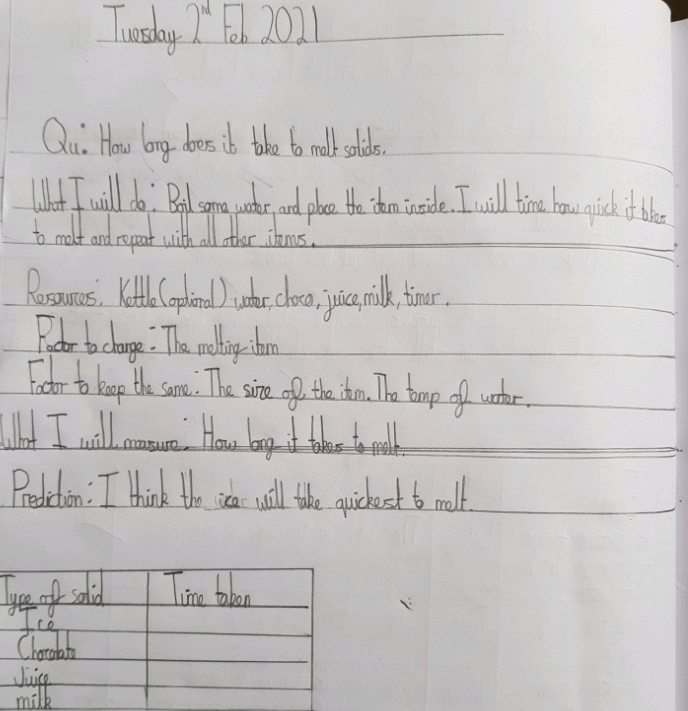 Tuesday 2nd Feb 2021
Qu: How long does it take to melt solids.
What I will do: Boil some water, and place the item inside. I will time how quick it takes
to melt and repeat with all other items.
Resources: Kettle (optional) water, choco, juice, milk, timer.
Factor to change: The melting item
Factor to keep the same: The size of the item. The temp of water.
What I will measure: How long it takes to melt.
Prediction: I think the ice will take quickest to melt.
Type of solid Time taken
Ice
Chocolate
Juice
milk